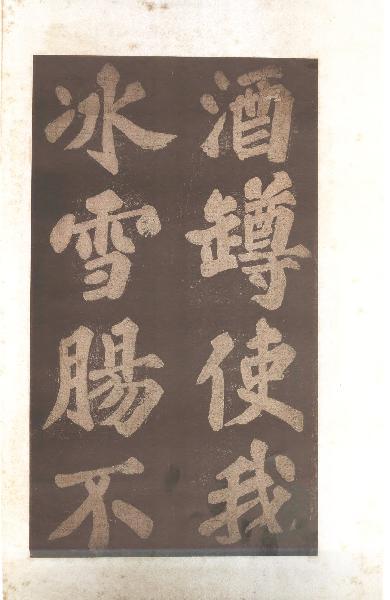 酒罇使我
冰雪腸不